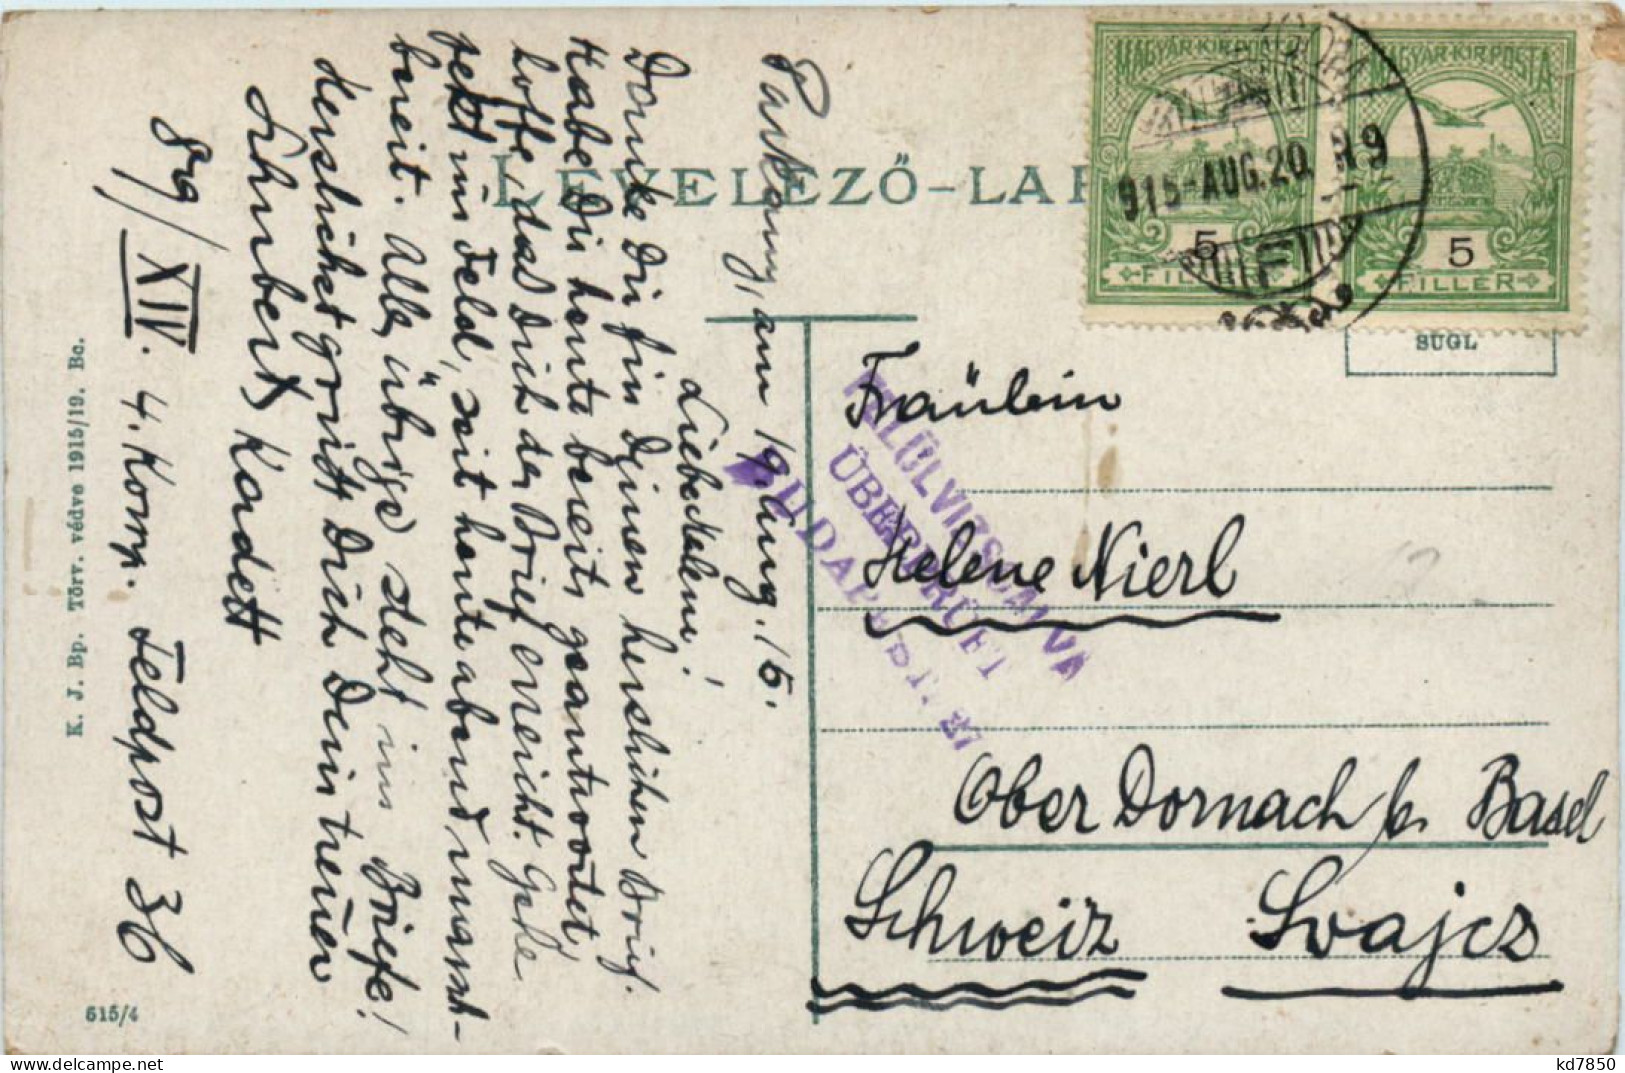 LEVELEZŐ-LAP
MAGYAR·KIR·POSTA
MAGYAR·KIR·POSTA
915-AUG.20. N9
5
5
FILLER
FILLER
SUGL
FELÜLVIZSGÁLVA
ÜBERPRÜFT
BUDAPEST.
Parkany, am 19. Aug. 15.
Liebe Heleni!
Danke Dir für Deinen herzlichen Brief.
Habe Dir heute bereits geantwortet,
hoffe, das Dich der Brief erreicht. Gehe
jetzt ins Feld, seit heute abend marsch-
bereit. Alles übrige steht im Briefe!
Herzlichst grüsst Dich Dein treuer
Schubert, Kadett
/XIV. 4. Komp. Feldpost 36
Fräulein
Helene Nierl
Ober Dornach b. Basel
Schweiz Svajcz
K. J. Bp. Törv. védve 1915/19. Bc.
615/4
kd7850